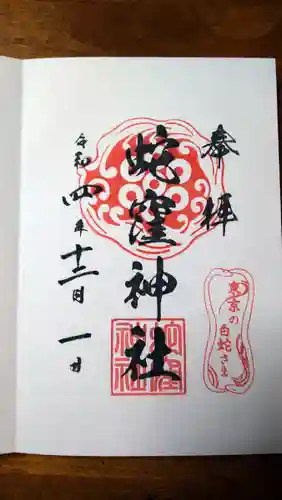 奉拝
東京の白蛇さま
蛇窪神社
蛇窪神社
令和四年十二月一日